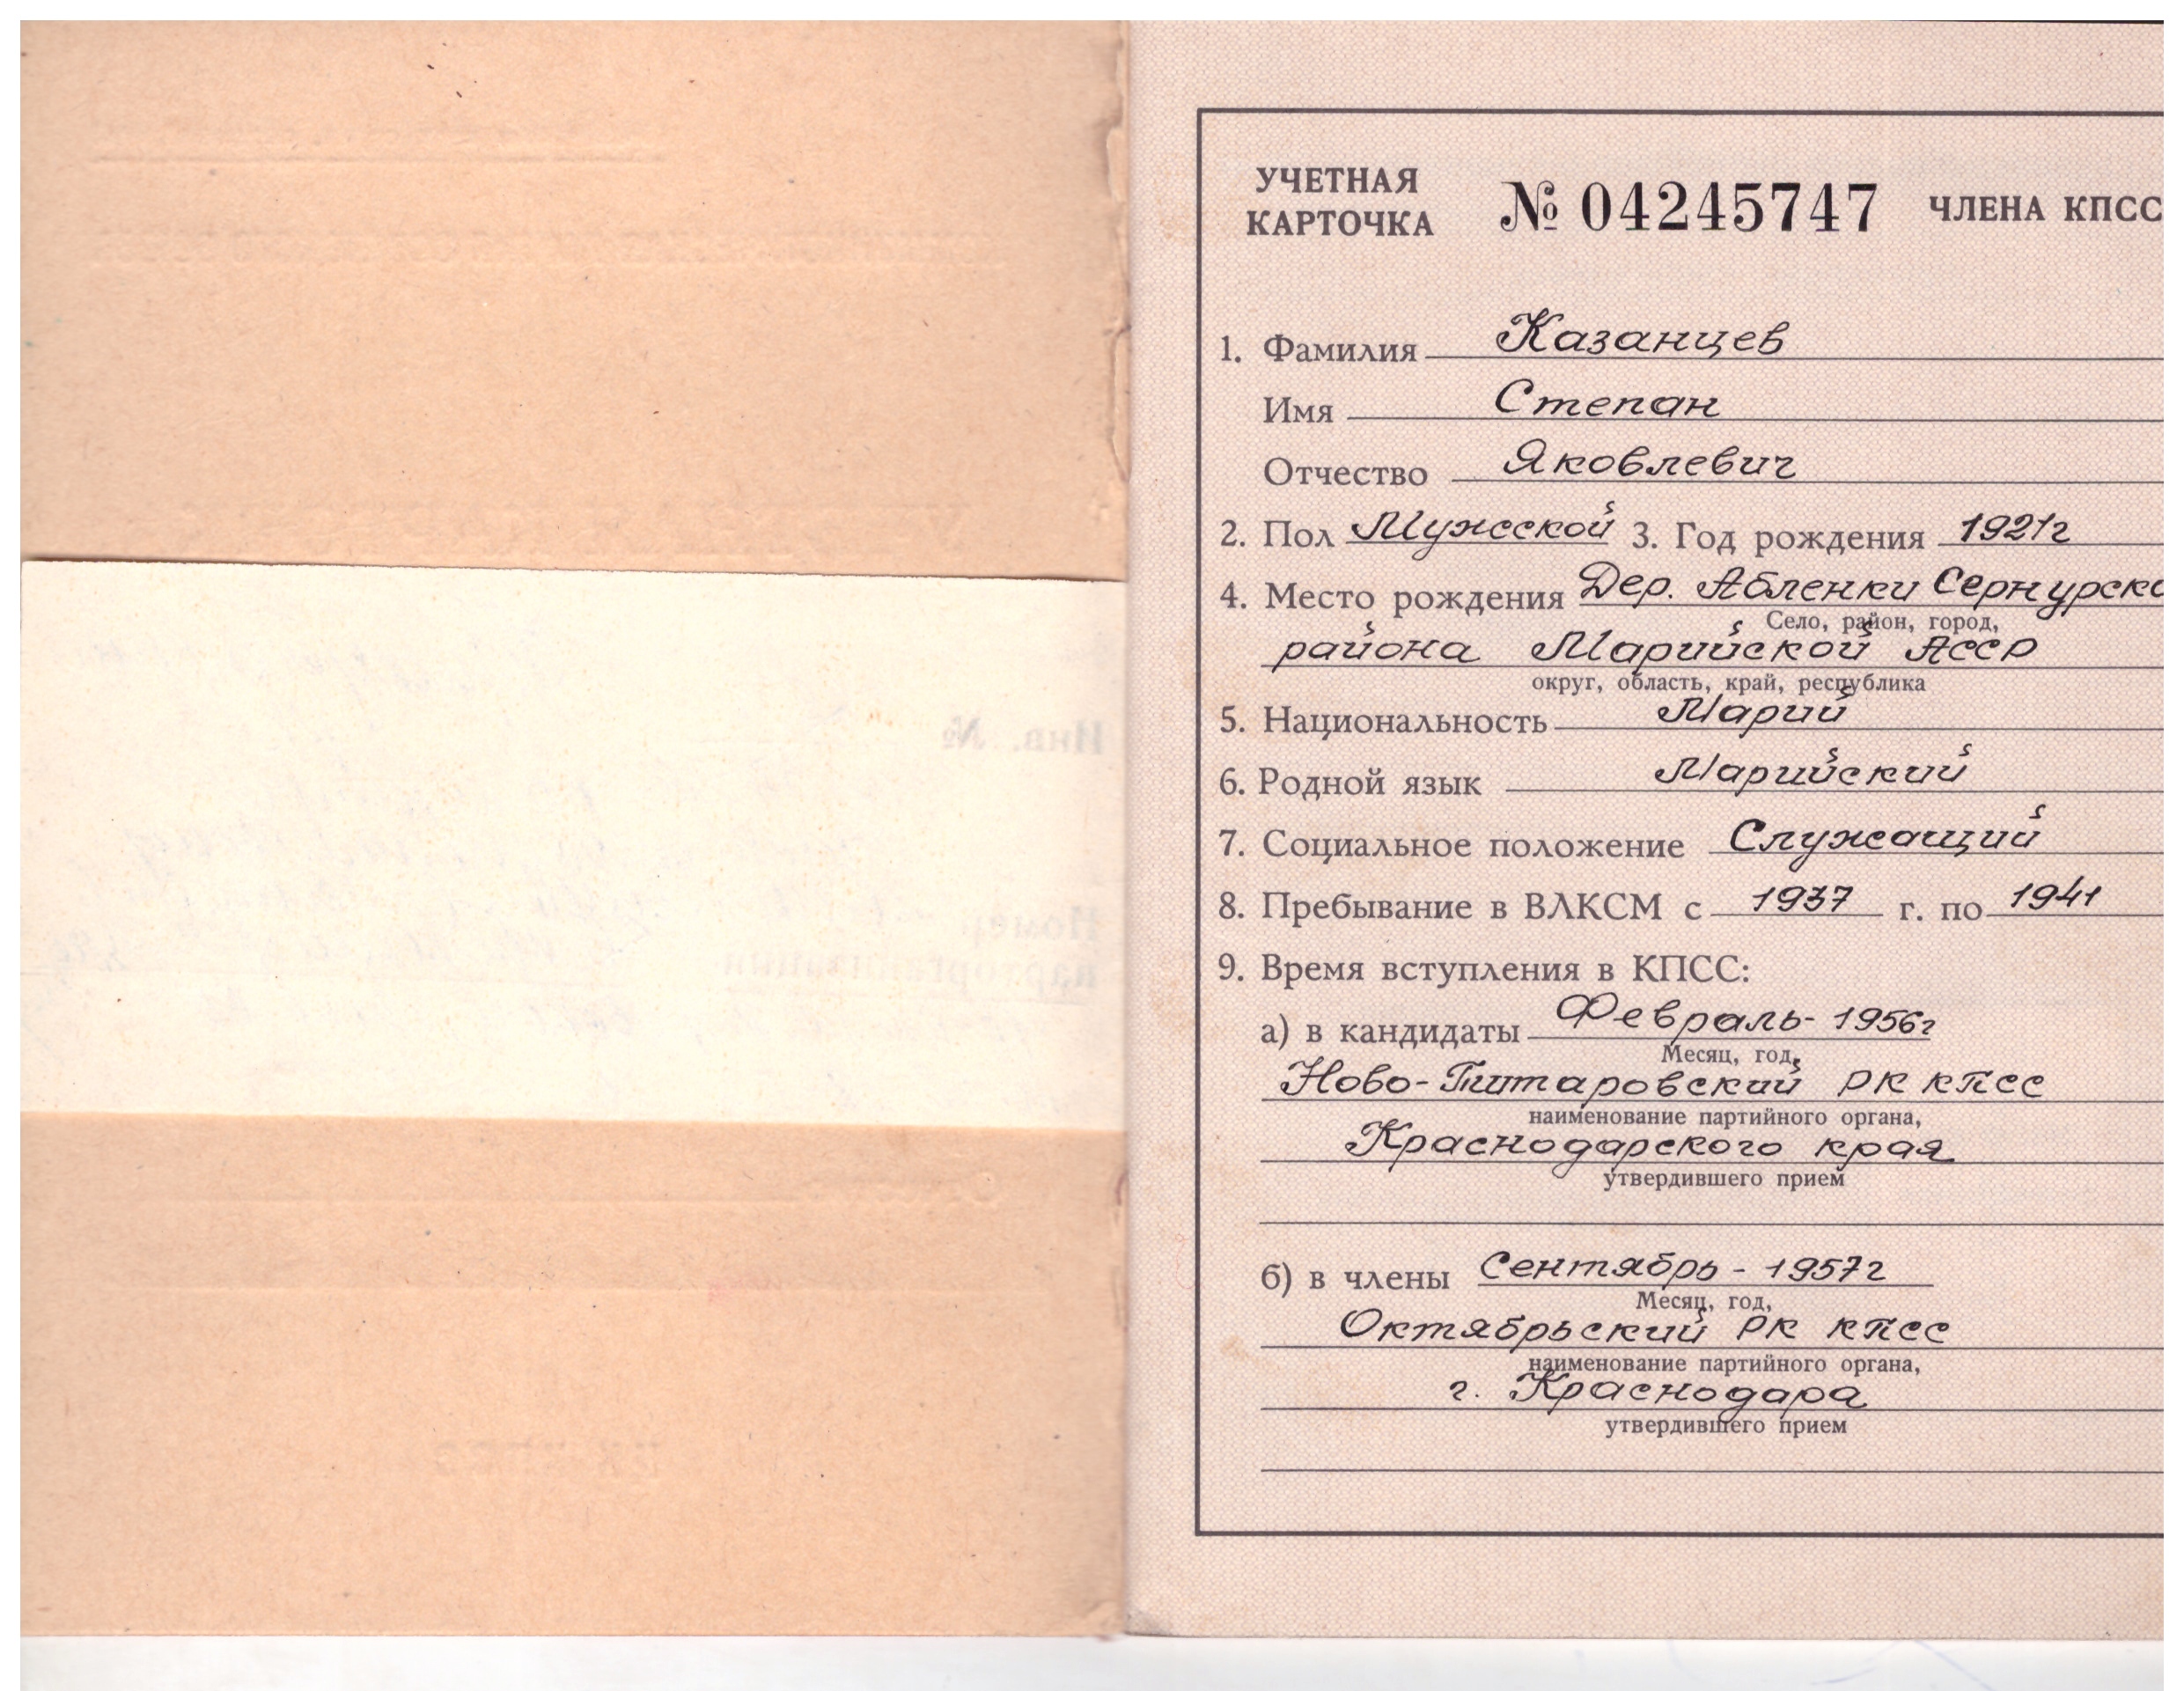 УЧЕТНАЯ
КАРТОЧКА № 04245747 ЧЛЕНА КПСС
1. Фамилия Казанцев
Имя Степан
Отчество Яковлевич
2. Пол Мужской 3. Год рождения 1921г
4. Место рождения Дер. Абленки Сернурско
Село, район, город,
района Марийской АССР
округ, область, край, республика
5. Национальность Марий
6. Родной язык Марийский
7. Социальное положение Служащий
8. Пребывание в ВЛКСМ с 1937 г. по 1941
9. Время вступления в КПСС:
а) в кандидаты Февраль - 1956г
Месяц, год,
Ново-Титаровский РК КПСС
наименование партийного органа,
Краснодарского края
утвердившего прием
б) в члены Сентябрь - 1957г
Месяц, год,
Октябрьский РК КПСС
наименование партийного органа,
г. Краснодара
утвердившего прием
Инв. №
Номер
парторганизации